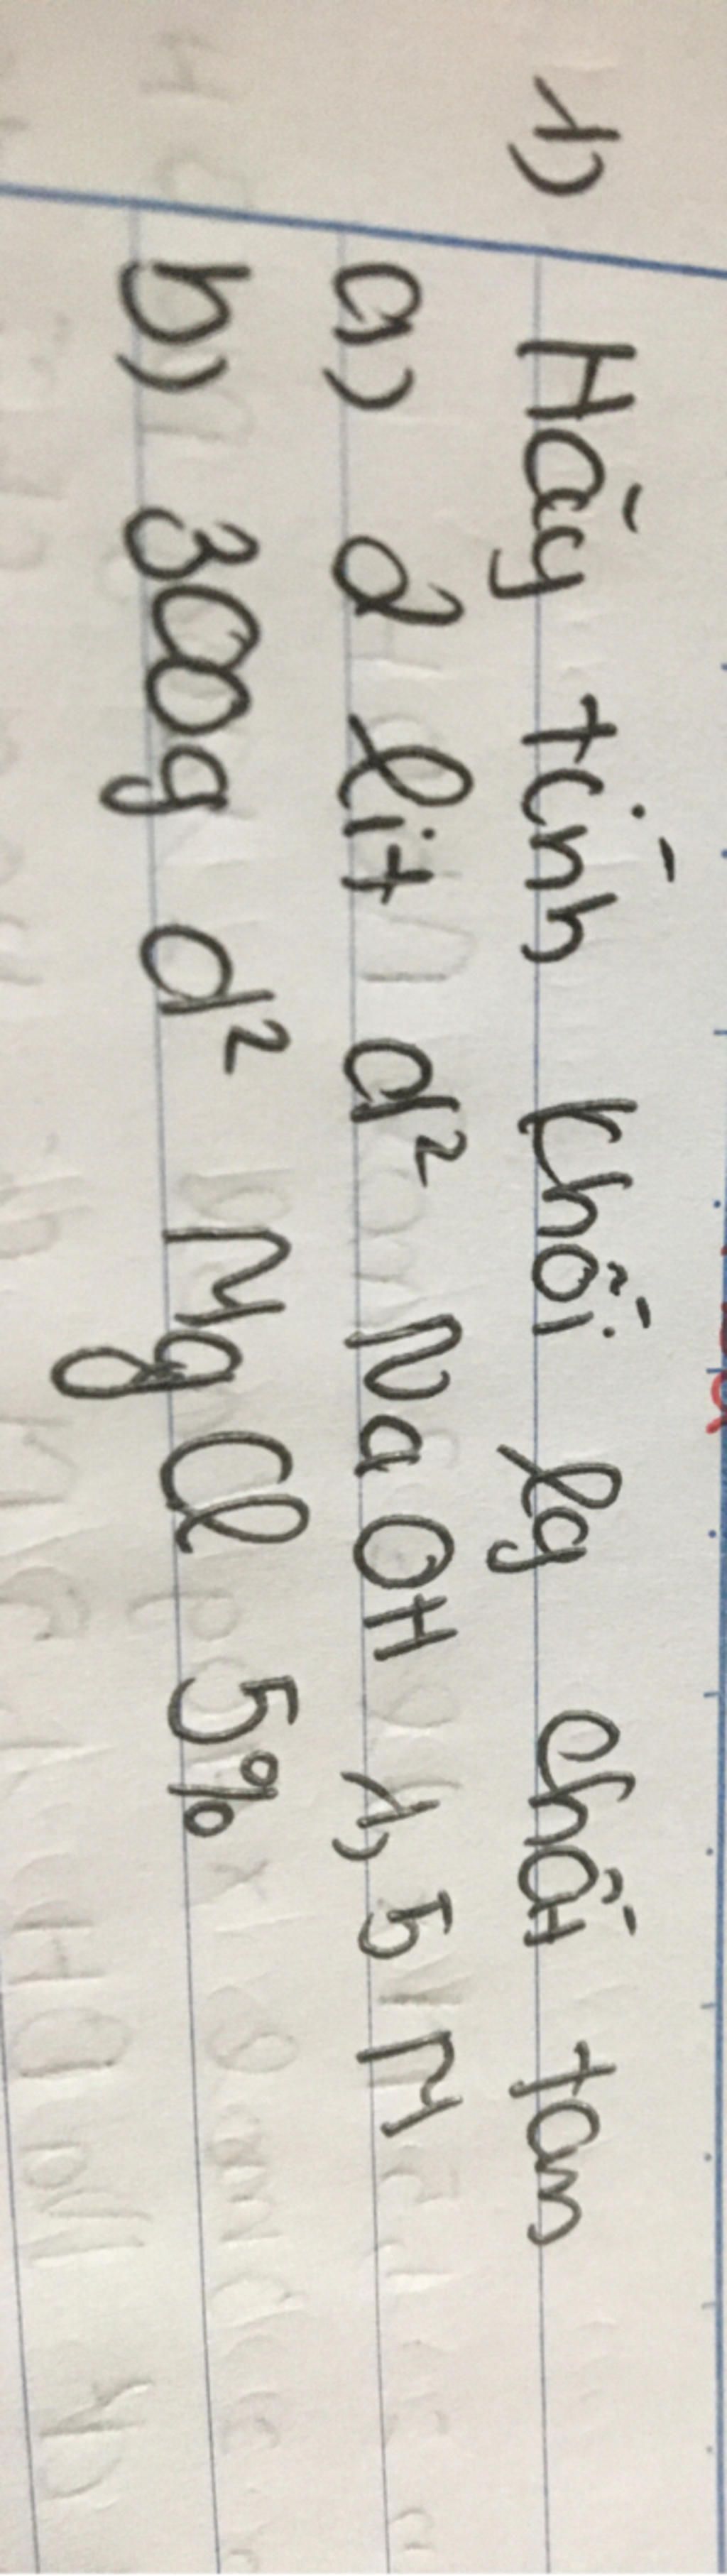 1) Hãy tính khối lg chất tan
a) 2 lit d² NaOH 1,5 M
b) 300g d² MgCl 5%